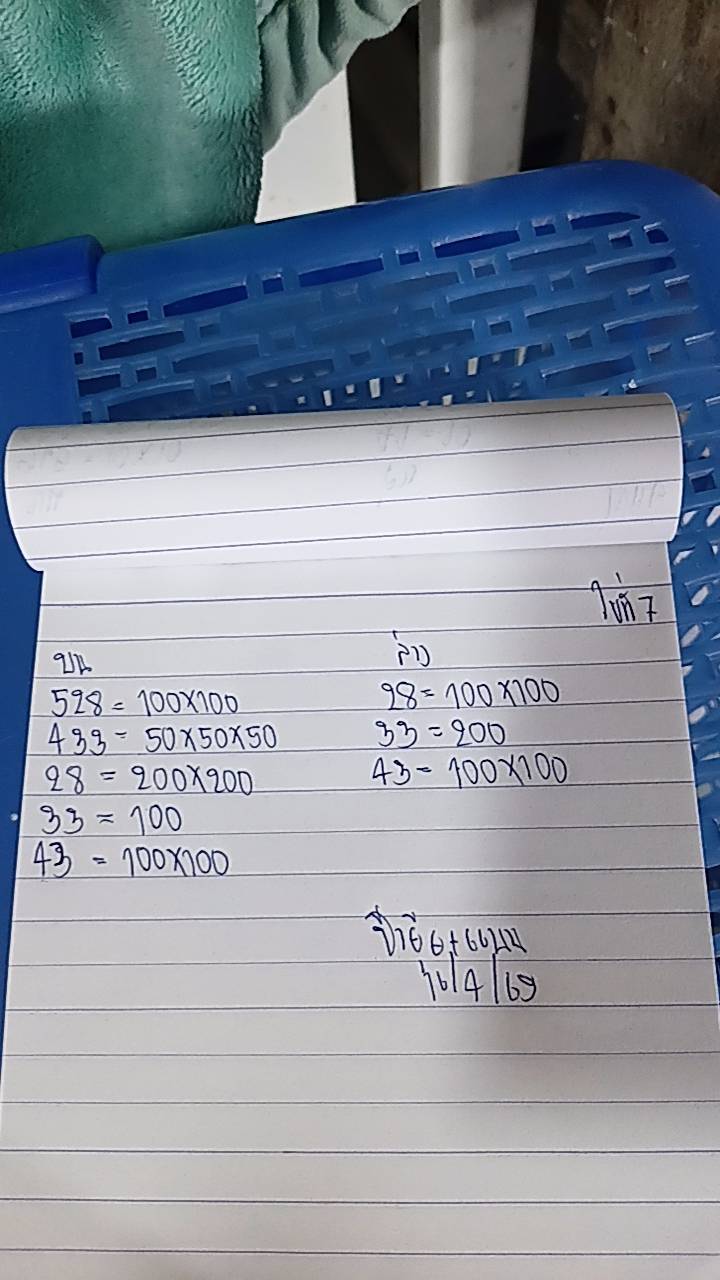 ใบที่ 7
บน
528 = 100×100
433 = 50×50×50
28 = 200×200
33 = 100
43 = 100×100
ล่าง
28 = 100×100
33 = 200
43 = 100×100
16/4/69